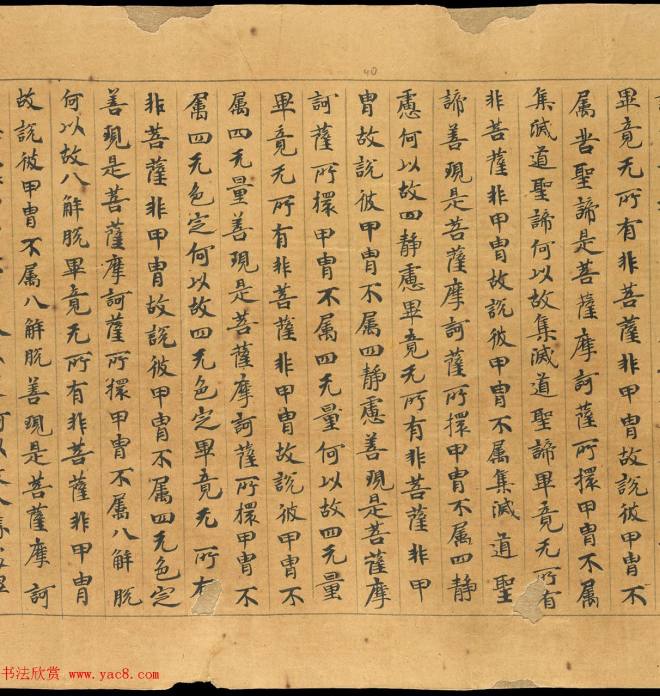 畢竟无所有非菩薩非甲冑故說彼甲冑不
属苦聖諦是菩薩摩訶薩所擐甲冑不属
集滅道聖諦何以故集滅道聖諦畢竟无所有
非菩薩非甲冑故說彼甲冑不属集滅道聖
諦善現是菩薩摩訶薩所擐甲冑不属四静
慮何以故四静慮畢竟无所有非菩薩非甲
冑故說彼甲冑不属四静慮善現是菩薩摩
訶薩所擐甲冑不属四无量何以故四无量
畢竟无所有非菩薩非甲冑故說彼甲冑不
属四无量善現是菩薩摩訶薩所擐甲冑不
属四无色定何以故四无色定畢竟无所有
非菩薩非甲冑故說彼甲冑不属四无色定
善現是菩薩摩訶薩所擐甲冑不属八解脫
何以故八解脫畢竟无所有非菩薩非甲冑
故說彼甲冑不属八解脫善現是菩薩摩訶
40
书法欣赏 www.yac8.com